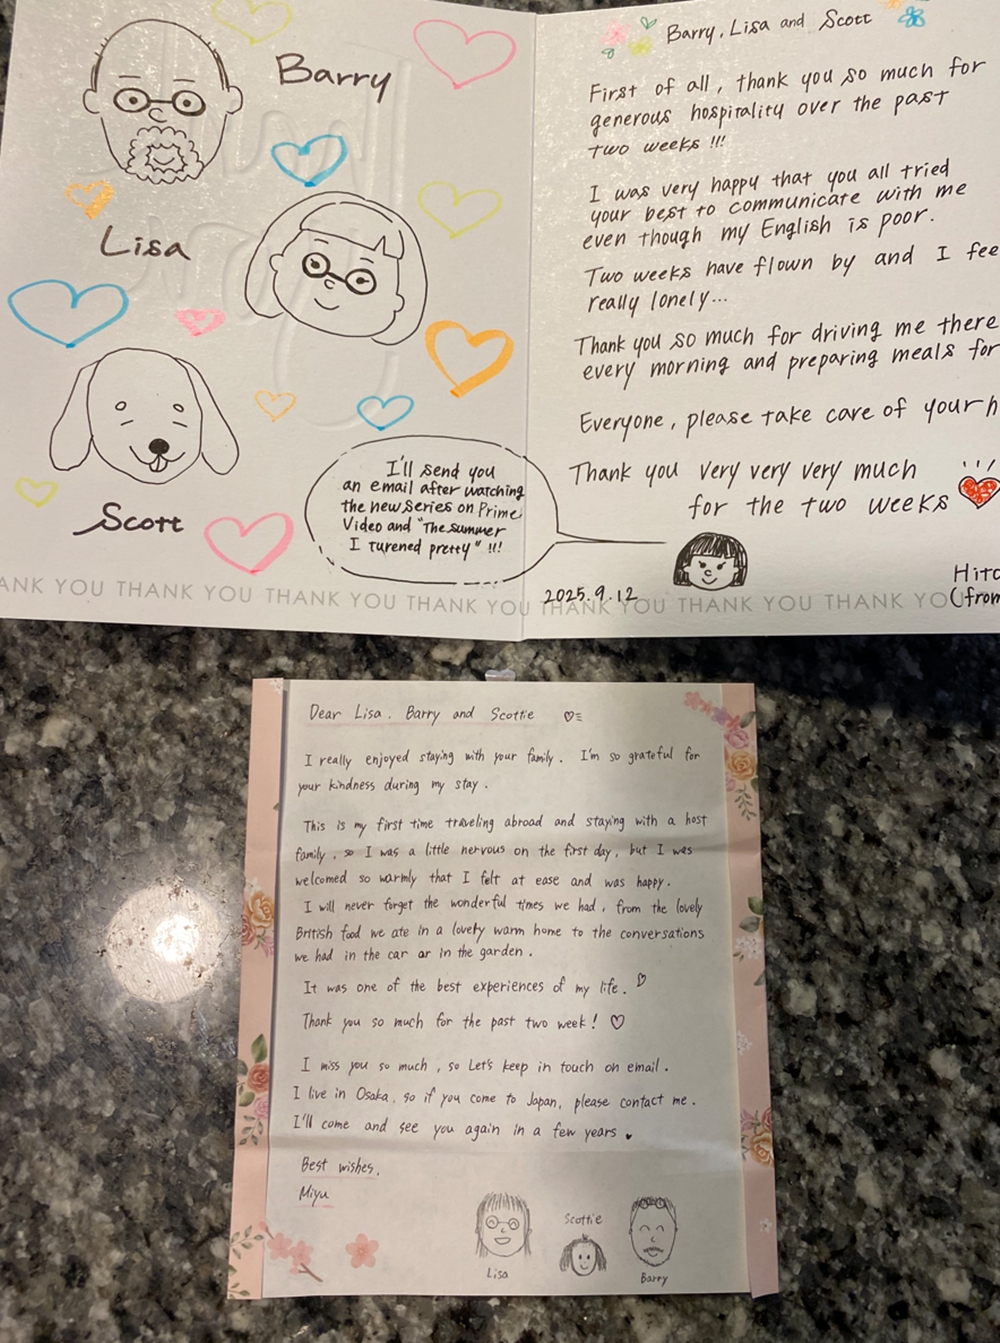 Barry
Lisa
Scott
I'll send you
an email after watching
the new series on Prime
Video and "The summer
I turened pretty" !!!
Barry, Lisa and Scott
First of all, thank you so much for
generous hospitality over the past
two weeks !!!
I was very happy that you all tried
your best to communicate with me
even though my English is poor.
Two weeks have flown by and I fee
really lonely...
Thank you so much for driving me there
every morning and preparing meals for
Everyone, please take care of your h
Thank you very very very much
for the two weeks
2025.9.12
Hito
(from
ANK YOU THANK YOU THANK YOU THANK YOU THANK YOU THANK YOU THANK YOU
Dear Lisa, Barry and Scottie
I really enjoyed staying with your family. I'm so grateful for
your kindness during my stay.
This is my first time traveling abroad and staying with a host
family, so I was a little nervous on the first day, but I was
welcomed so warmly that I felt at ease and was happy.
I will never forget the wonderful times we had, from the lovely
British food we ate in a lovely warm home to the conversations
we had in the car or in the garden.
It was one of the best experiences of my life.
Thank you so much for the past two week!
I miss you so much, so Let's keep in touch on email.
I live in Osaka, so if you come to Japan, please contact me.
I'll come and see you again in a few years
Best wishes,
Miyu
Lisa
Scottie
Barry